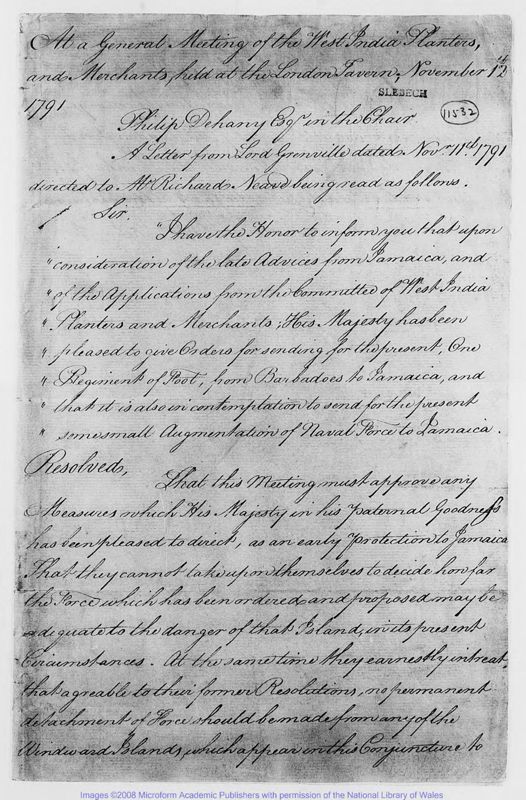 At a General Meeting of the West India Planters,
and Merchants, held at the London Tavern, November 12th
SLEBECH
11532
1791
Philip Dehany Esqr. in the Chair
A Letter from Lord Grenville dated Novr. 11th 1791
directed to Mr Richard Neave being read as follows.
Sir.
"I have the Honor to inform you that upon
"consideration of the late Advices from Jamaica, and
"of the Applications from the Committee of West India
"Planters and Merchants, His Majesty has been
"pleased to give Orders for sending for the present, One
"Regiment of Foot, from Barbadoes to Jamaica, and
"that it is also in contemplation to send for the present
"some small Augmentation of Naval Force to Jamaica.
Resolved,
That this Meeting must approve any
Measures which His Majesty in his paternal Goodness
has been pleased to direct, as an early protection to Jamaica
That they cannot take upon themselves to decide how far
the Force which has been ordered and proposed may be
adequate to the danger of that Island, in its present
Circumstances. At the same time they earnestly intreat,
that agreable to their former Resolutions, no permanent
detachment of Force should be made from any of the
Windward Islands, which appear in this Conjuncture to
Images ©2008 Microform Academic Publishers with permission of the National Library of Wales